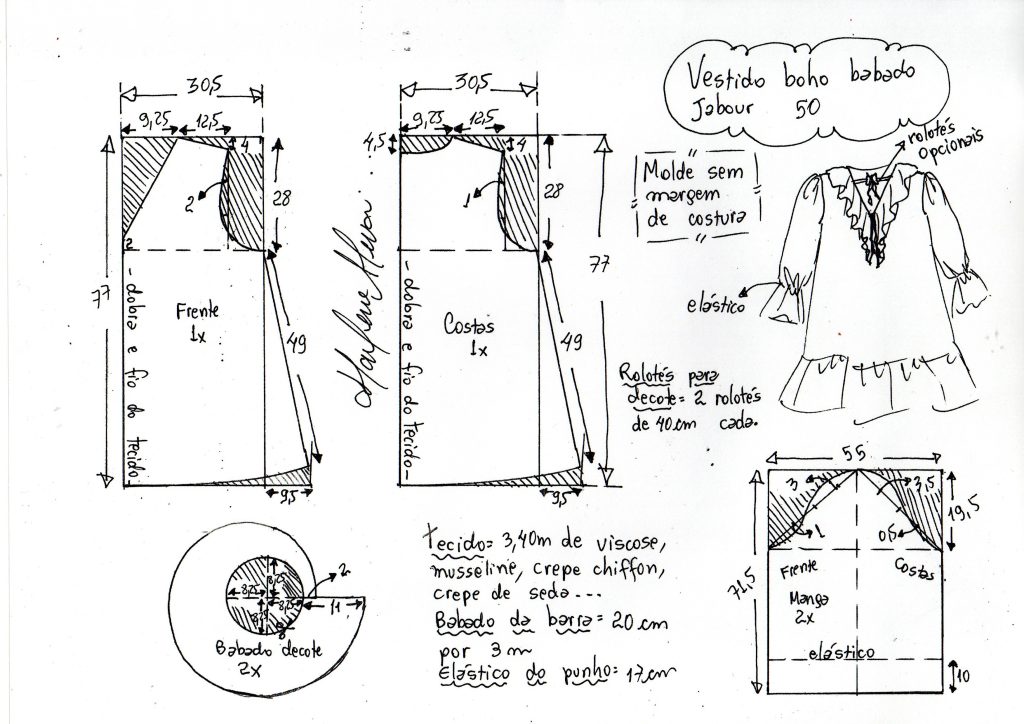 Vestido boho babado
Jabour 50
rolotés
opcionais
Molde sem
margem
de costura
elástico
Rolotés para
decote= 2 rolotés
de 40cm cada.
30,5
9,25
12,5
4
2
28
2
77
Frente
1x
-dobra e fio do tecido-
49
9,5
30,5
9,25
12,5
4,5
4
1
28
77
Costas
1x
-dobra e fio do tecido-
49
9,5
Marlene Mukai
8,25
8,25
8,25
8,25
2
11
Babado decote
2x
tecido= 3,40m de viscose,
musseline, crepe chiffon,
crepe de seda...
Babado da barra= 20cm
por 3m
Elástico do punho= 17cm
55
3
3,5
19,5
1
0,5
Frente
Costas
72,5
Manga
2x
elástico
10